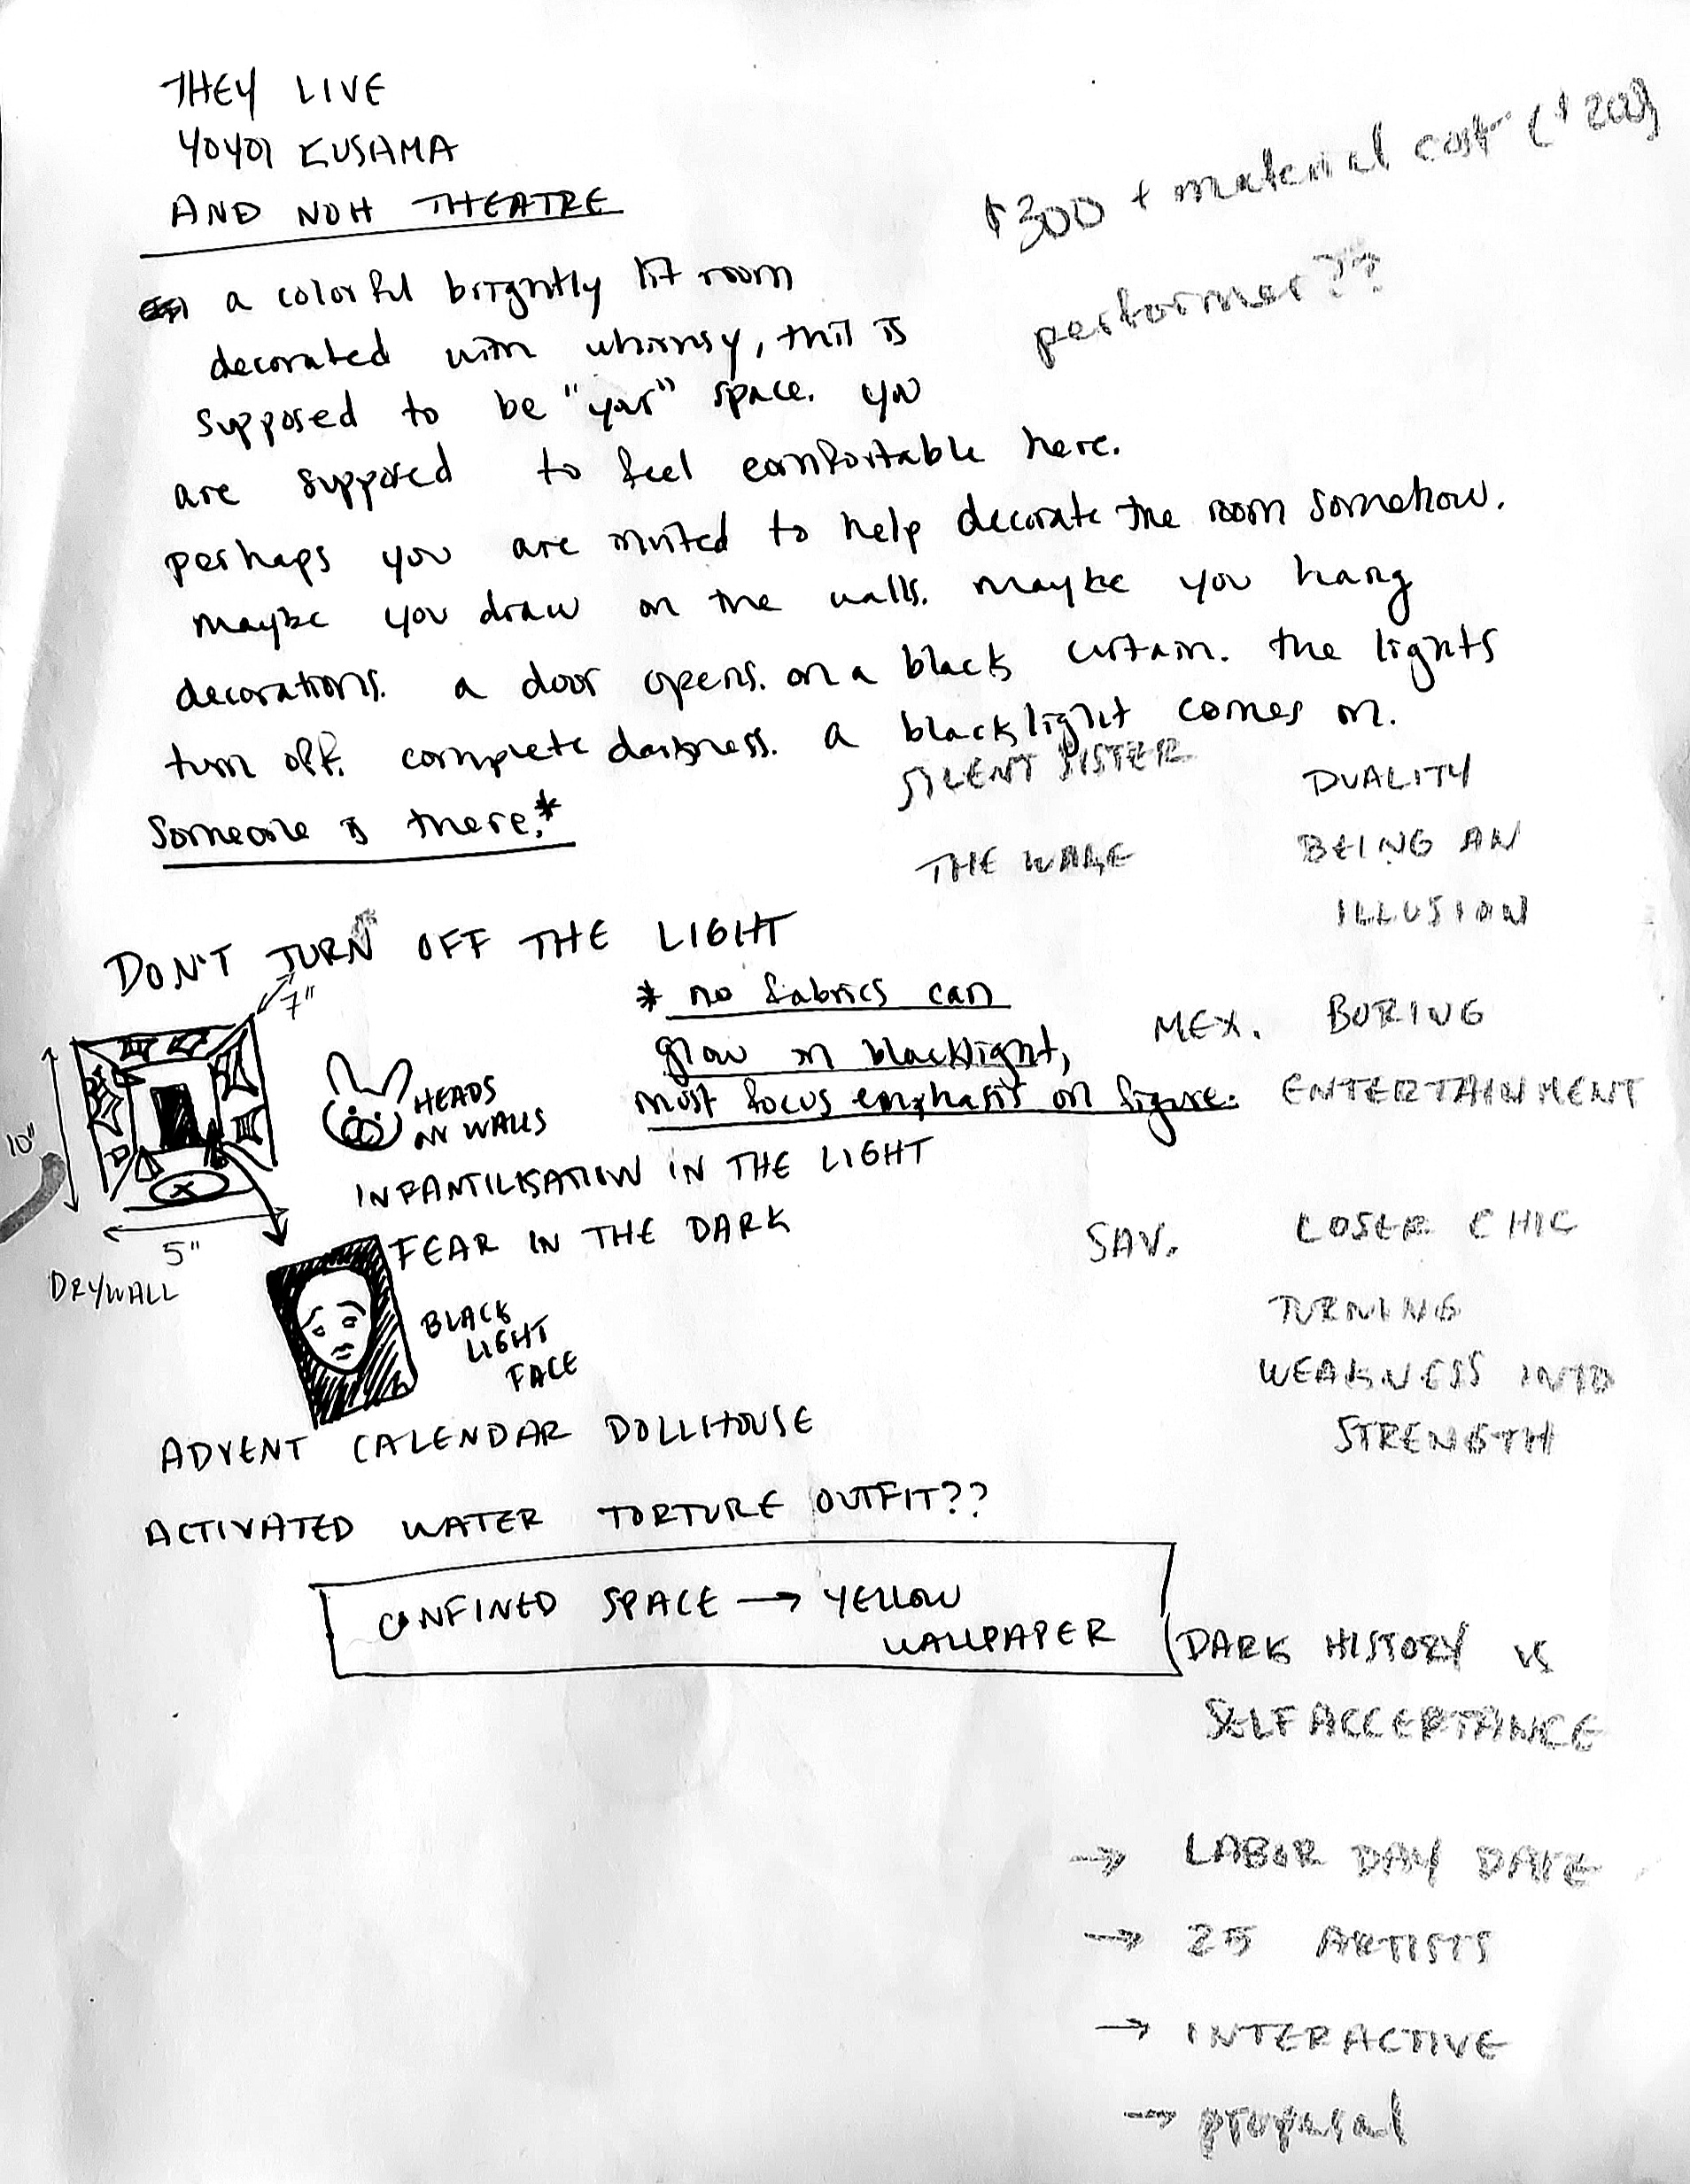 THEY LIVE
YOYOI KUSAMA
AND NOH THEATRE
$300 + material cost ($200)
performer??
a colorful brightly lit room
decorated with whimsy, this is
supposed to be "your" space. you
are supposed to feel comfortable here.
perhaps you are invited to help decorate the room somehow.
maybe you draw on the walls. maybe you hang
decorations. a door opens. on a black curtain. the lights
turn off. complete darkness. a blacklight comes on.
someone is there.*
SILENT SISTER
THE WAKE
DUALITY
BEING AN
ILLUSION
DON'T TURN OFF THE LIGHT
7"
10"
5"
DRYWALL
HEADS
ON WALLS
* no fabrics can
glow in blacklight,
must focus emphasis on figure.
MEX. BORING
ENTERTAINMENT
INFANTILISATION IN THE LIGHT
FEAR IN THE DARK
BLACK
LIGHT
FACE
SAV. LOSER CHIC
TURNING
WEAKNESS INTO
STRENGTH
ADVENT CALENDAR DOLLHOUSE
ACTIVATED WATER TORTURE OUTFIT??
CONFINED SPACE → YELLOW
WALLPAPER
DARK HISTORY VS
SELF ACCEPTANCE
→ LABOR DAY DATE
→ 25 ARTISTS
→ INTERACTIVE
→ proposal